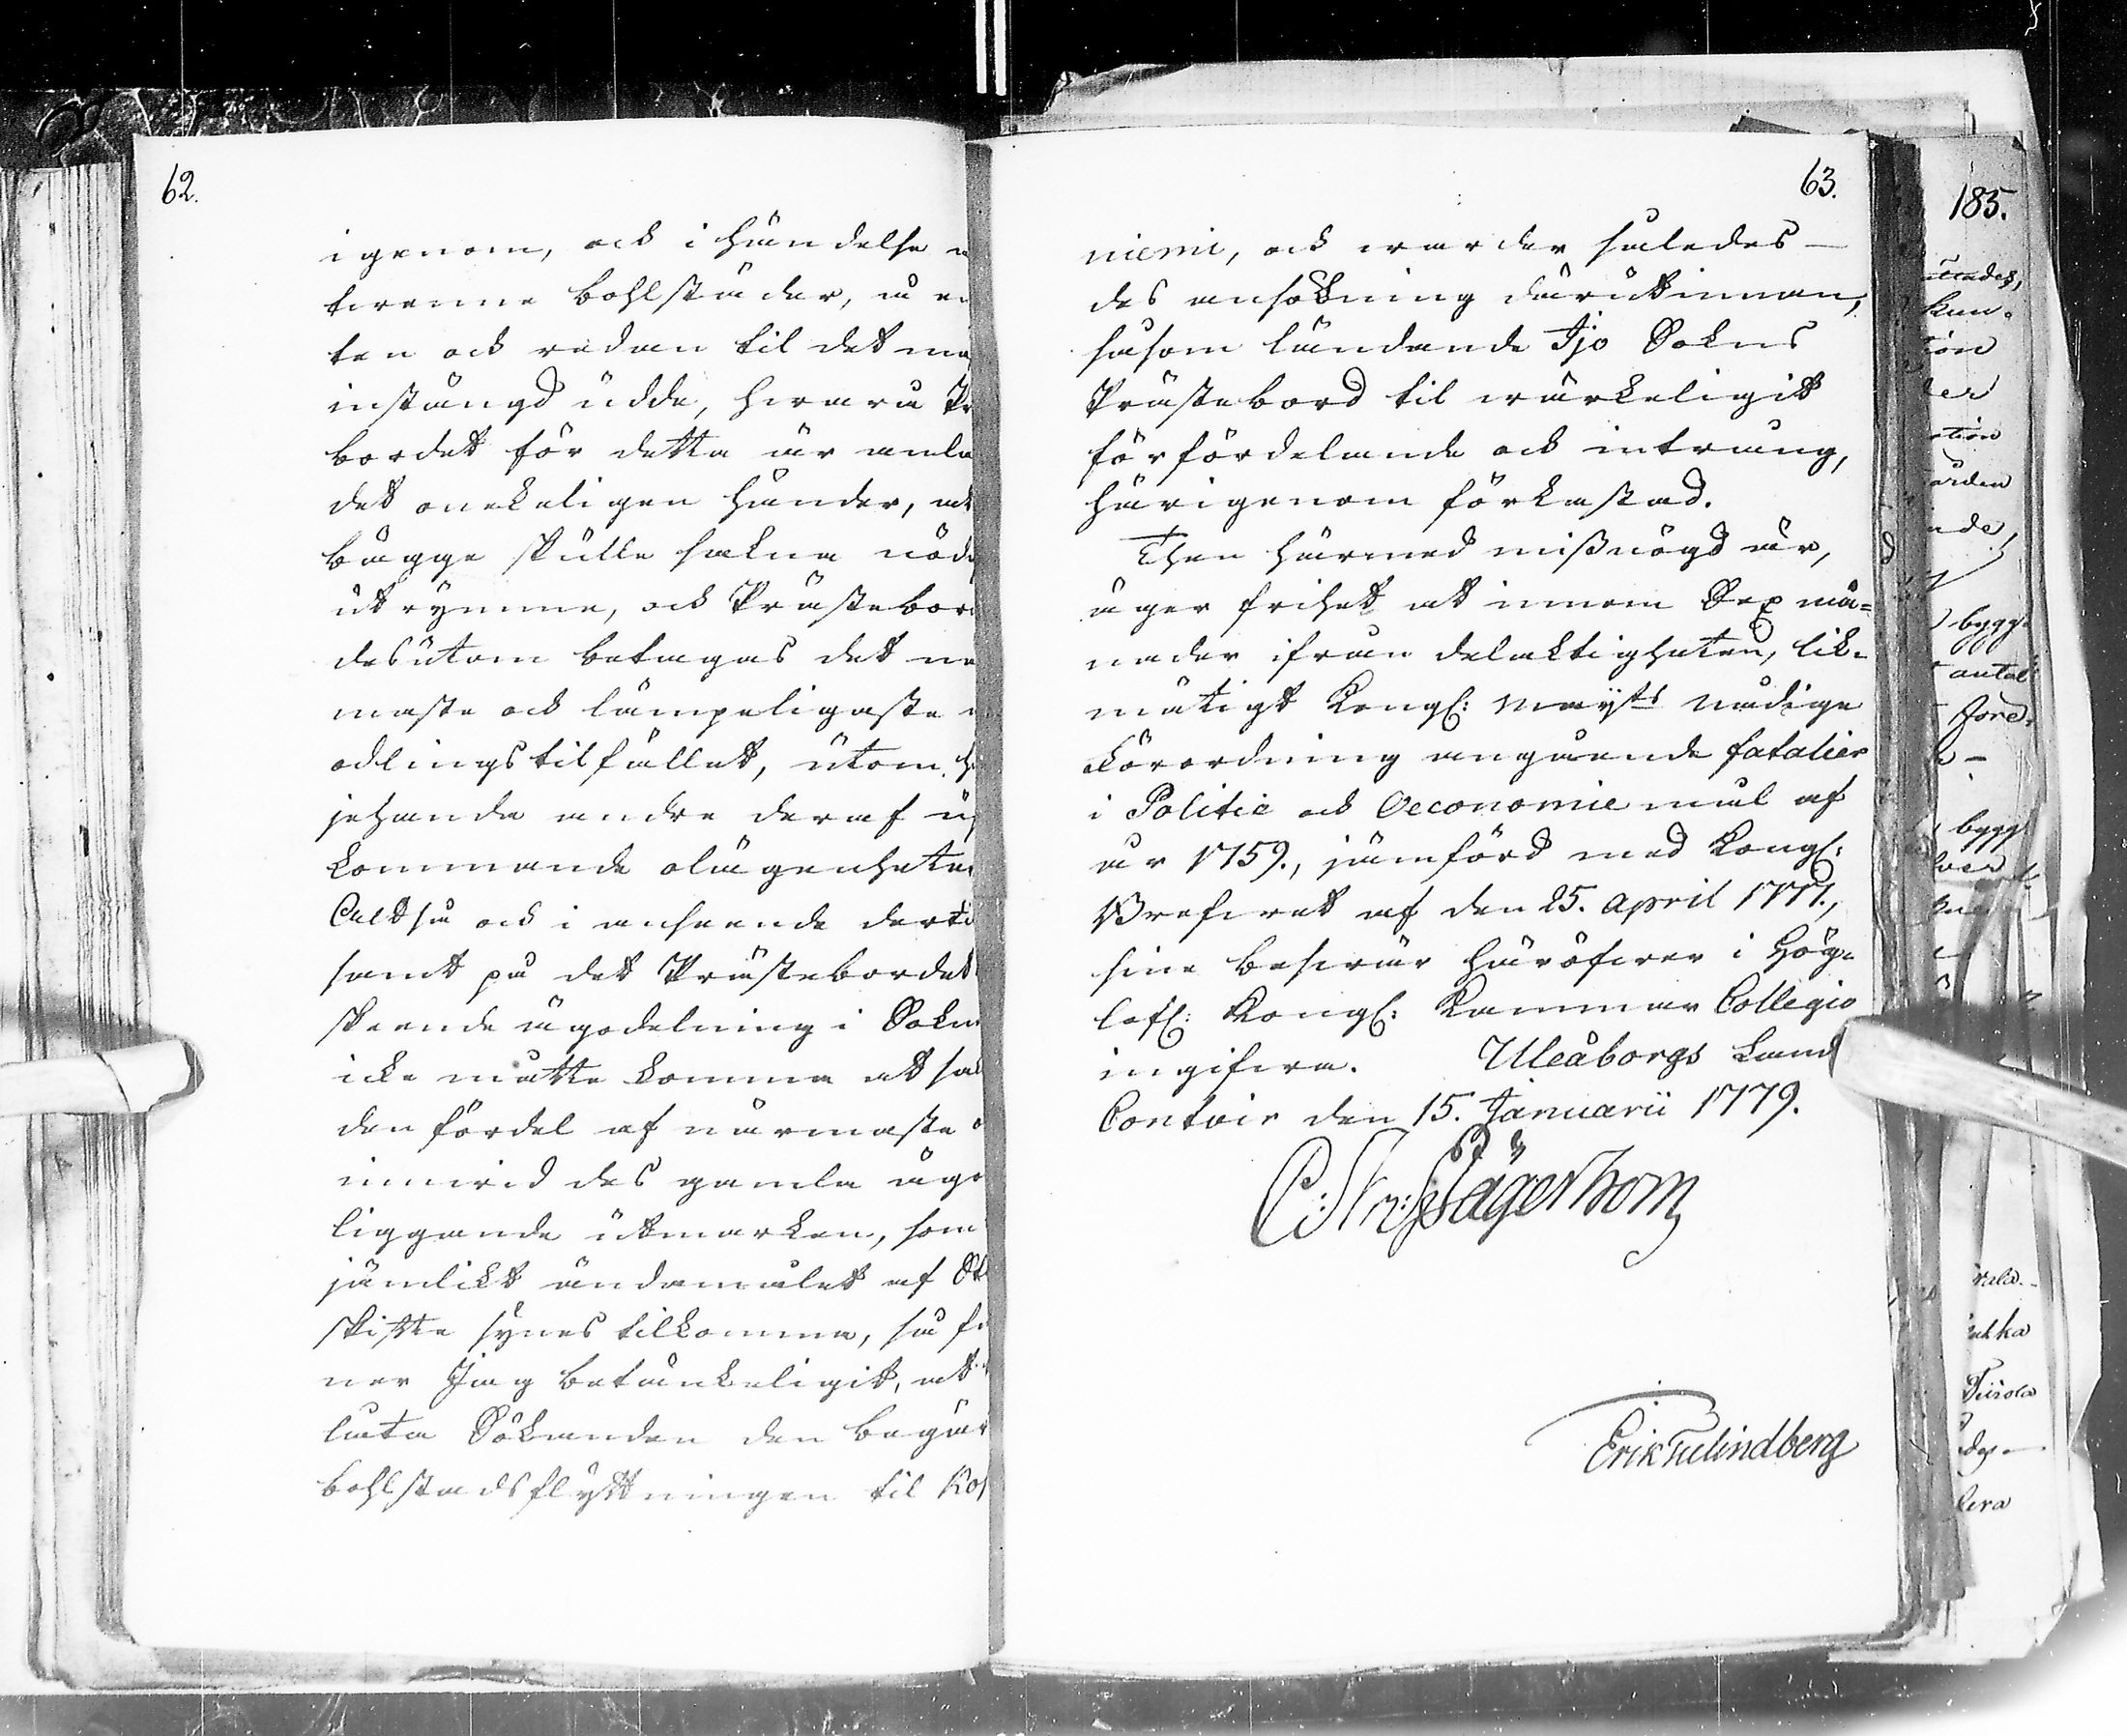 62.
igenom, och i händelse
twenne bohlstäder, å en
ten och redan til det ma
instängd udde, hwara Pr
bordet för detta är anla
det onekeligen händer, at
bägge skulle sakna nöd
utrymme, och Prästebor
desutom betagas det
maste och lämpeligaste
odlingstilfället, utom
jehanda andra deraf
kommande olägenheter
Altså och i anseende derti
samt på det Prästebordet
skeende ägodelning i Sokn
icke måtte komma at sak
den fördel af närmaste
inunid des gamla ägo
liggande utmarken, som
jämlikt ändamålet af St
skifte synes tilkomma, så fi
ner Jag betänkeligit, at
låta Sökanden den begär
bohlstadsflyttningen til Kos
63.
niemi, och warder således
des ansökning därutinnan,
såsom ländande Ijo Sokns
Prästebord til wärkeligit
förfördelande och intrång,
härigenom förkastad.
Then härmed missnögd är,
äger frihet at innom Sex må-
nader ifrån delaktigheten, lik-
mätigt Kongl: Maÿts nådige
Förordning angående fatalier
i Politie och Oeconomie mål af
år 1759., jämförd med Kongl:
Brefwet af den 25. april 1771.,
sine beswär häröfwer i Hög-
lofl: Kongl: Kammar Collegio
ingifwa. Uleåborgs Land
Contoir den 15. Januarii 1779.
Jägerhorn
Erik Tulindberg
185.
bygg
antal
före-
bygg